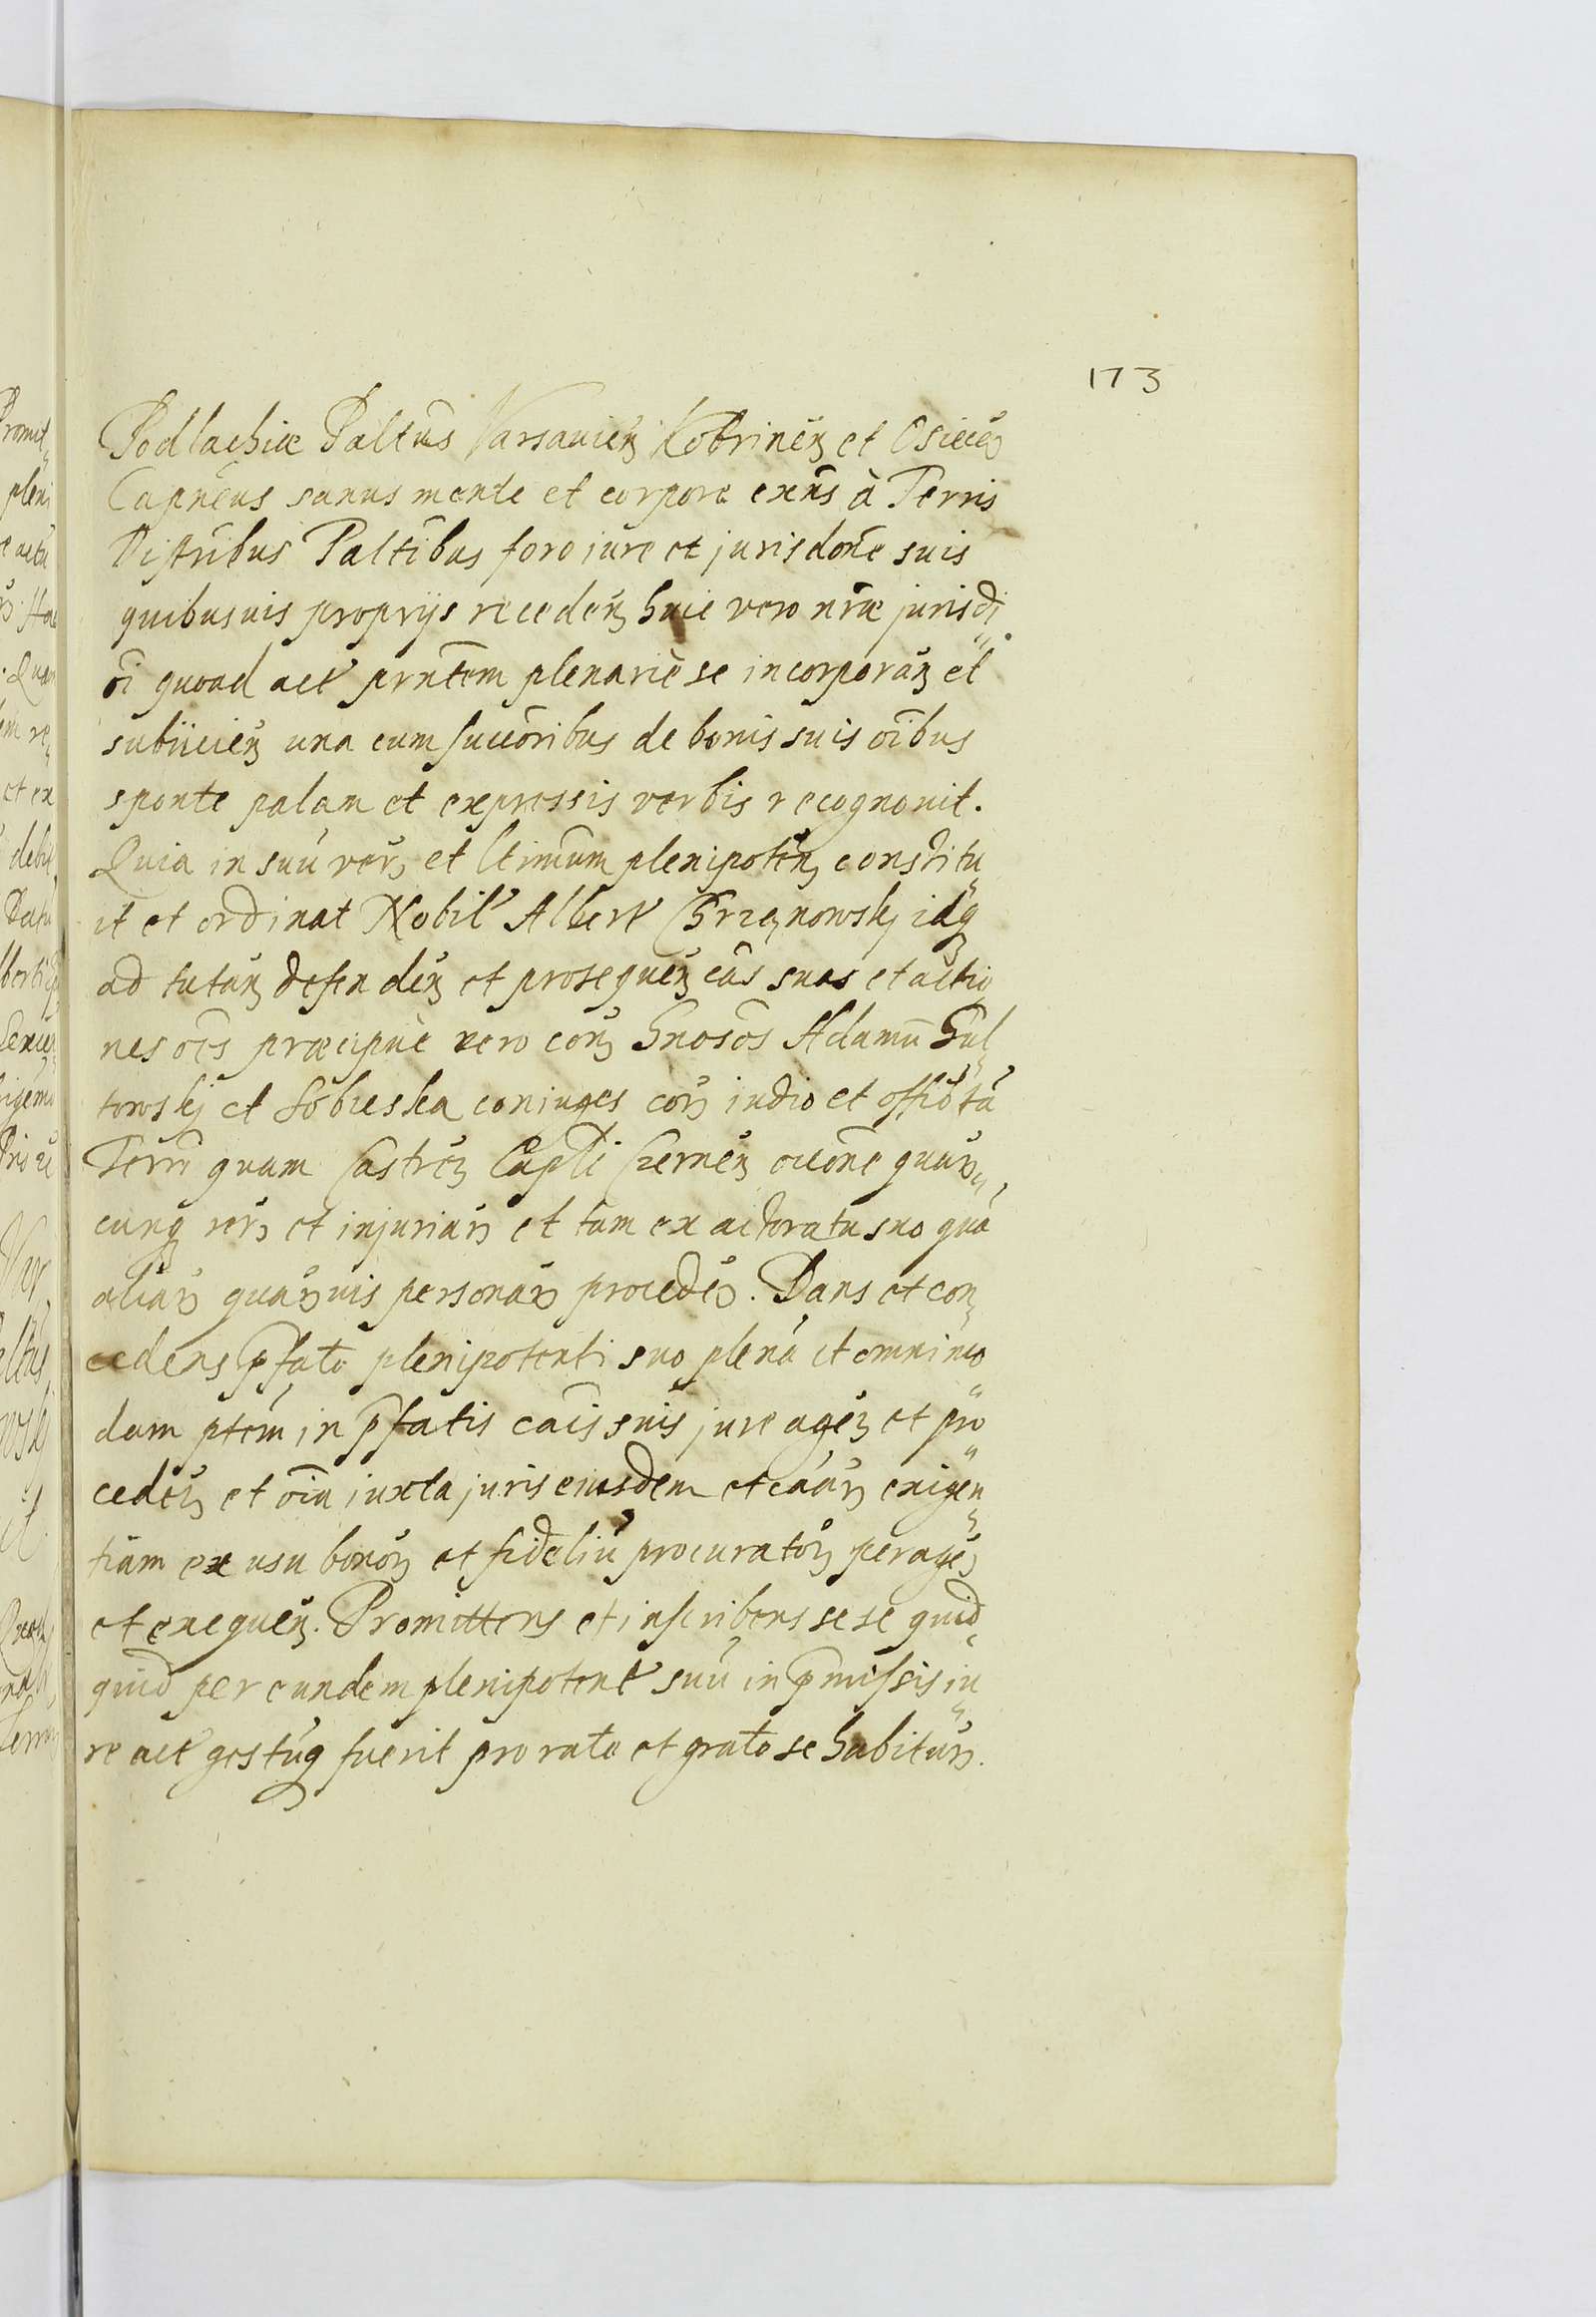 173
Podlachiæ Paltus Varsavien Kobrinen et Osiecen
Capneus sanus mente et corpore exns à Terris
Distribus Paltibus foro iure et jurisdone suis
quibusuis proprijs receden huic vero nræ jurisdi
oi quoad act prntem plenariè se incorporan et
subiicien una cum succoribus de bonis suis oibus
sponte palam et expressis verbis recognovit.
Quia in suú verú et ltimum plenipoten constitu
it et ordinat Nobil Albert Chrzanowskj idq
ad tutan defenden et prosequen cas suas et actio
nes oes præcipuè vero con Gnosos Adamú Gul
towskj et Sobieska coniuges cor iudio et offio tá
Terri quam Castren Capli Czernen occone quar
cunq rer et injuriar et tam ex actoratu suo quá
aliar quaruis personar proceden. Dans et con
cedens pfato plenipotenti suo plená et omnimo
dam ptem in pfatis cais suis jure agen et pro
ceden et oia iuxta juris eiusdem et caar exigen
tiam ex usu bonor et fideliú procurator peragen
et exequen. Promittens et inscribens sese quid
quid per eundem plenipotent suú in pmissis iu
re act gestúq fuerit pro rato et grato se habitur.